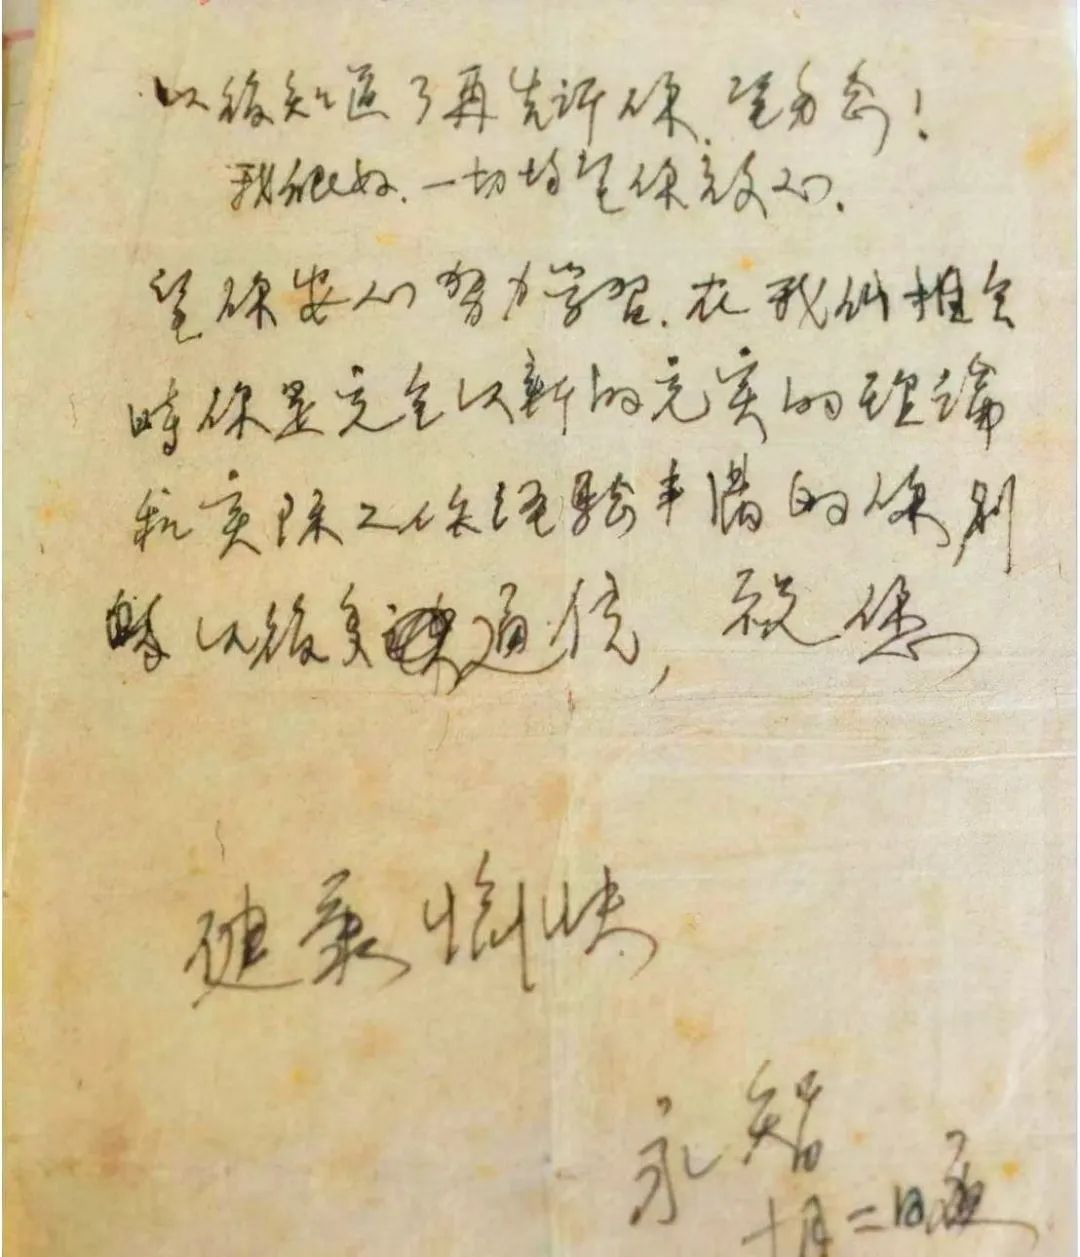 以後知道了再告訴你,望勿念!
我很好.一切均望你放心.
望你安心努力學習.在我们相会
時你是完全以新的充实的理論
和实际工作经驗丰满的你.别
時以後多通信,祝您
健康愉快
永智
十月二日夜